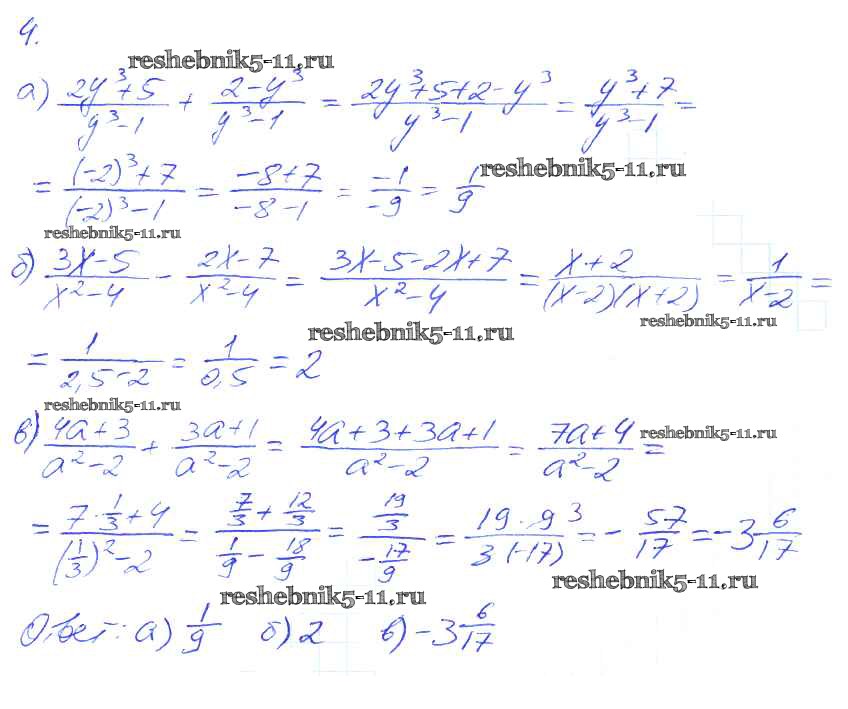 4.
reshebnik5-11.ru
а) (2y³+5)/(y³-1) + (2-y³)/(y³-1) = (2y³+5+2-y³)/(y³-1) = (y³+7)/(y³-1) =
= ((-2)³+7)/((-2)³-1) = (-8+7)/(-8-1) = (-1)/(-9) = 1/9 reshebnik5-11.ru
reshebnik5-11.ru
б) (3x-5)/(x²-4) - (2x-7)/(x²-4) = (3x-5-2x+7)/(x²-4) = (x+2)/((x-2)(x+2)) = 1/(x-2) =
reshebnik5-11.ru reshebnik5-11.ru
= 1/(2,5-2) = 1/0,5 = 2
reshebnik5-11.ru
в) (4a+3)/(a²-2) + (3a+1)/(a²-2) = (4a+3+3a+1)/(a²-2) = (7a+4)/(a²-2) = reshebnik5-11.ru
= (7·1/3+4)/((1/3)²-2) = (7/3+12/3)/(1/9-18/9) = (19/3)/(-17/9) = (19·9³)/(3·(-17)) = -57/17 = -3 6/17
reshebnik5-11.ru reshebnik5-11.ru
Ответ: а) 1/9 б) 2 в) -3 6/17